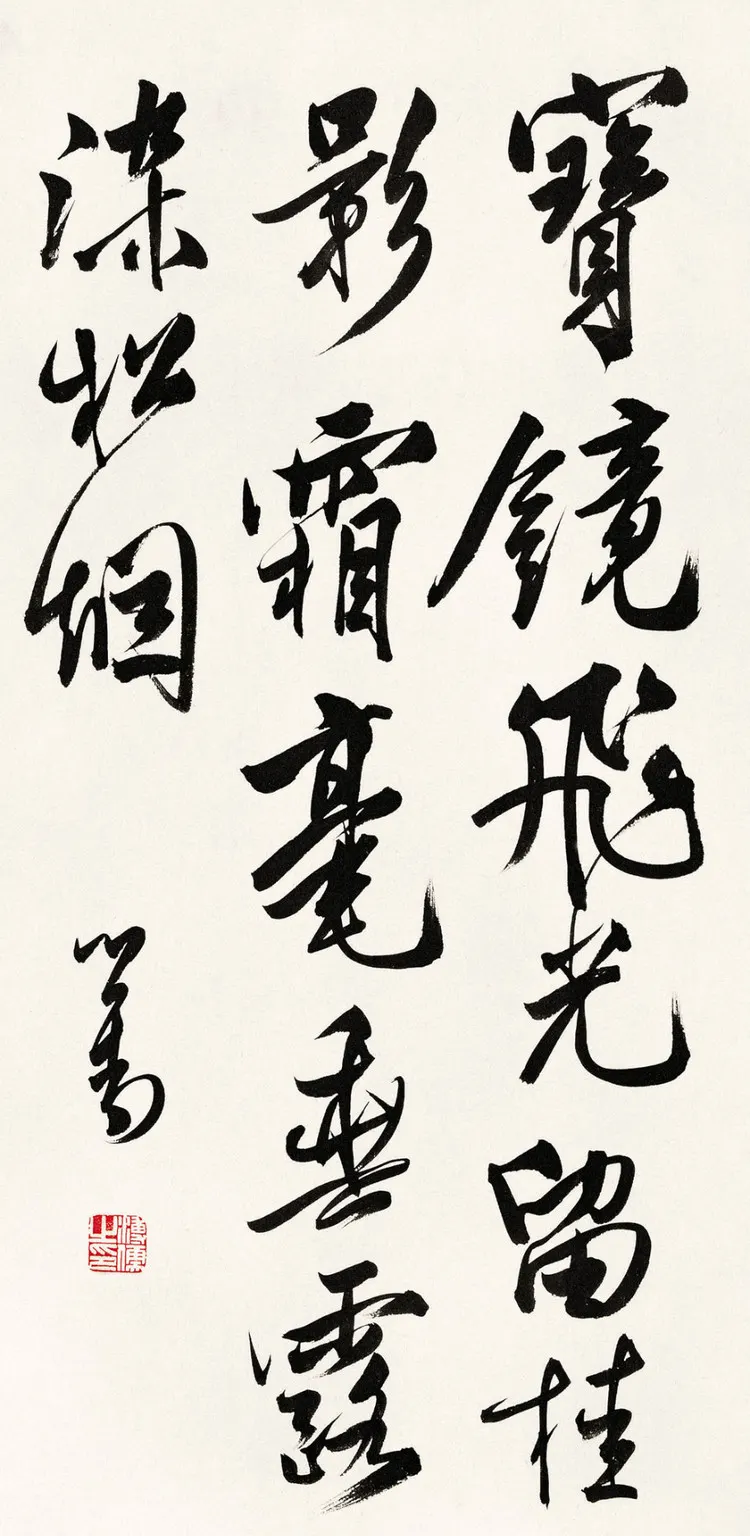 寶鏡飛光留桂
影霜毫垂露
染松烟
心畬
溥儒之印